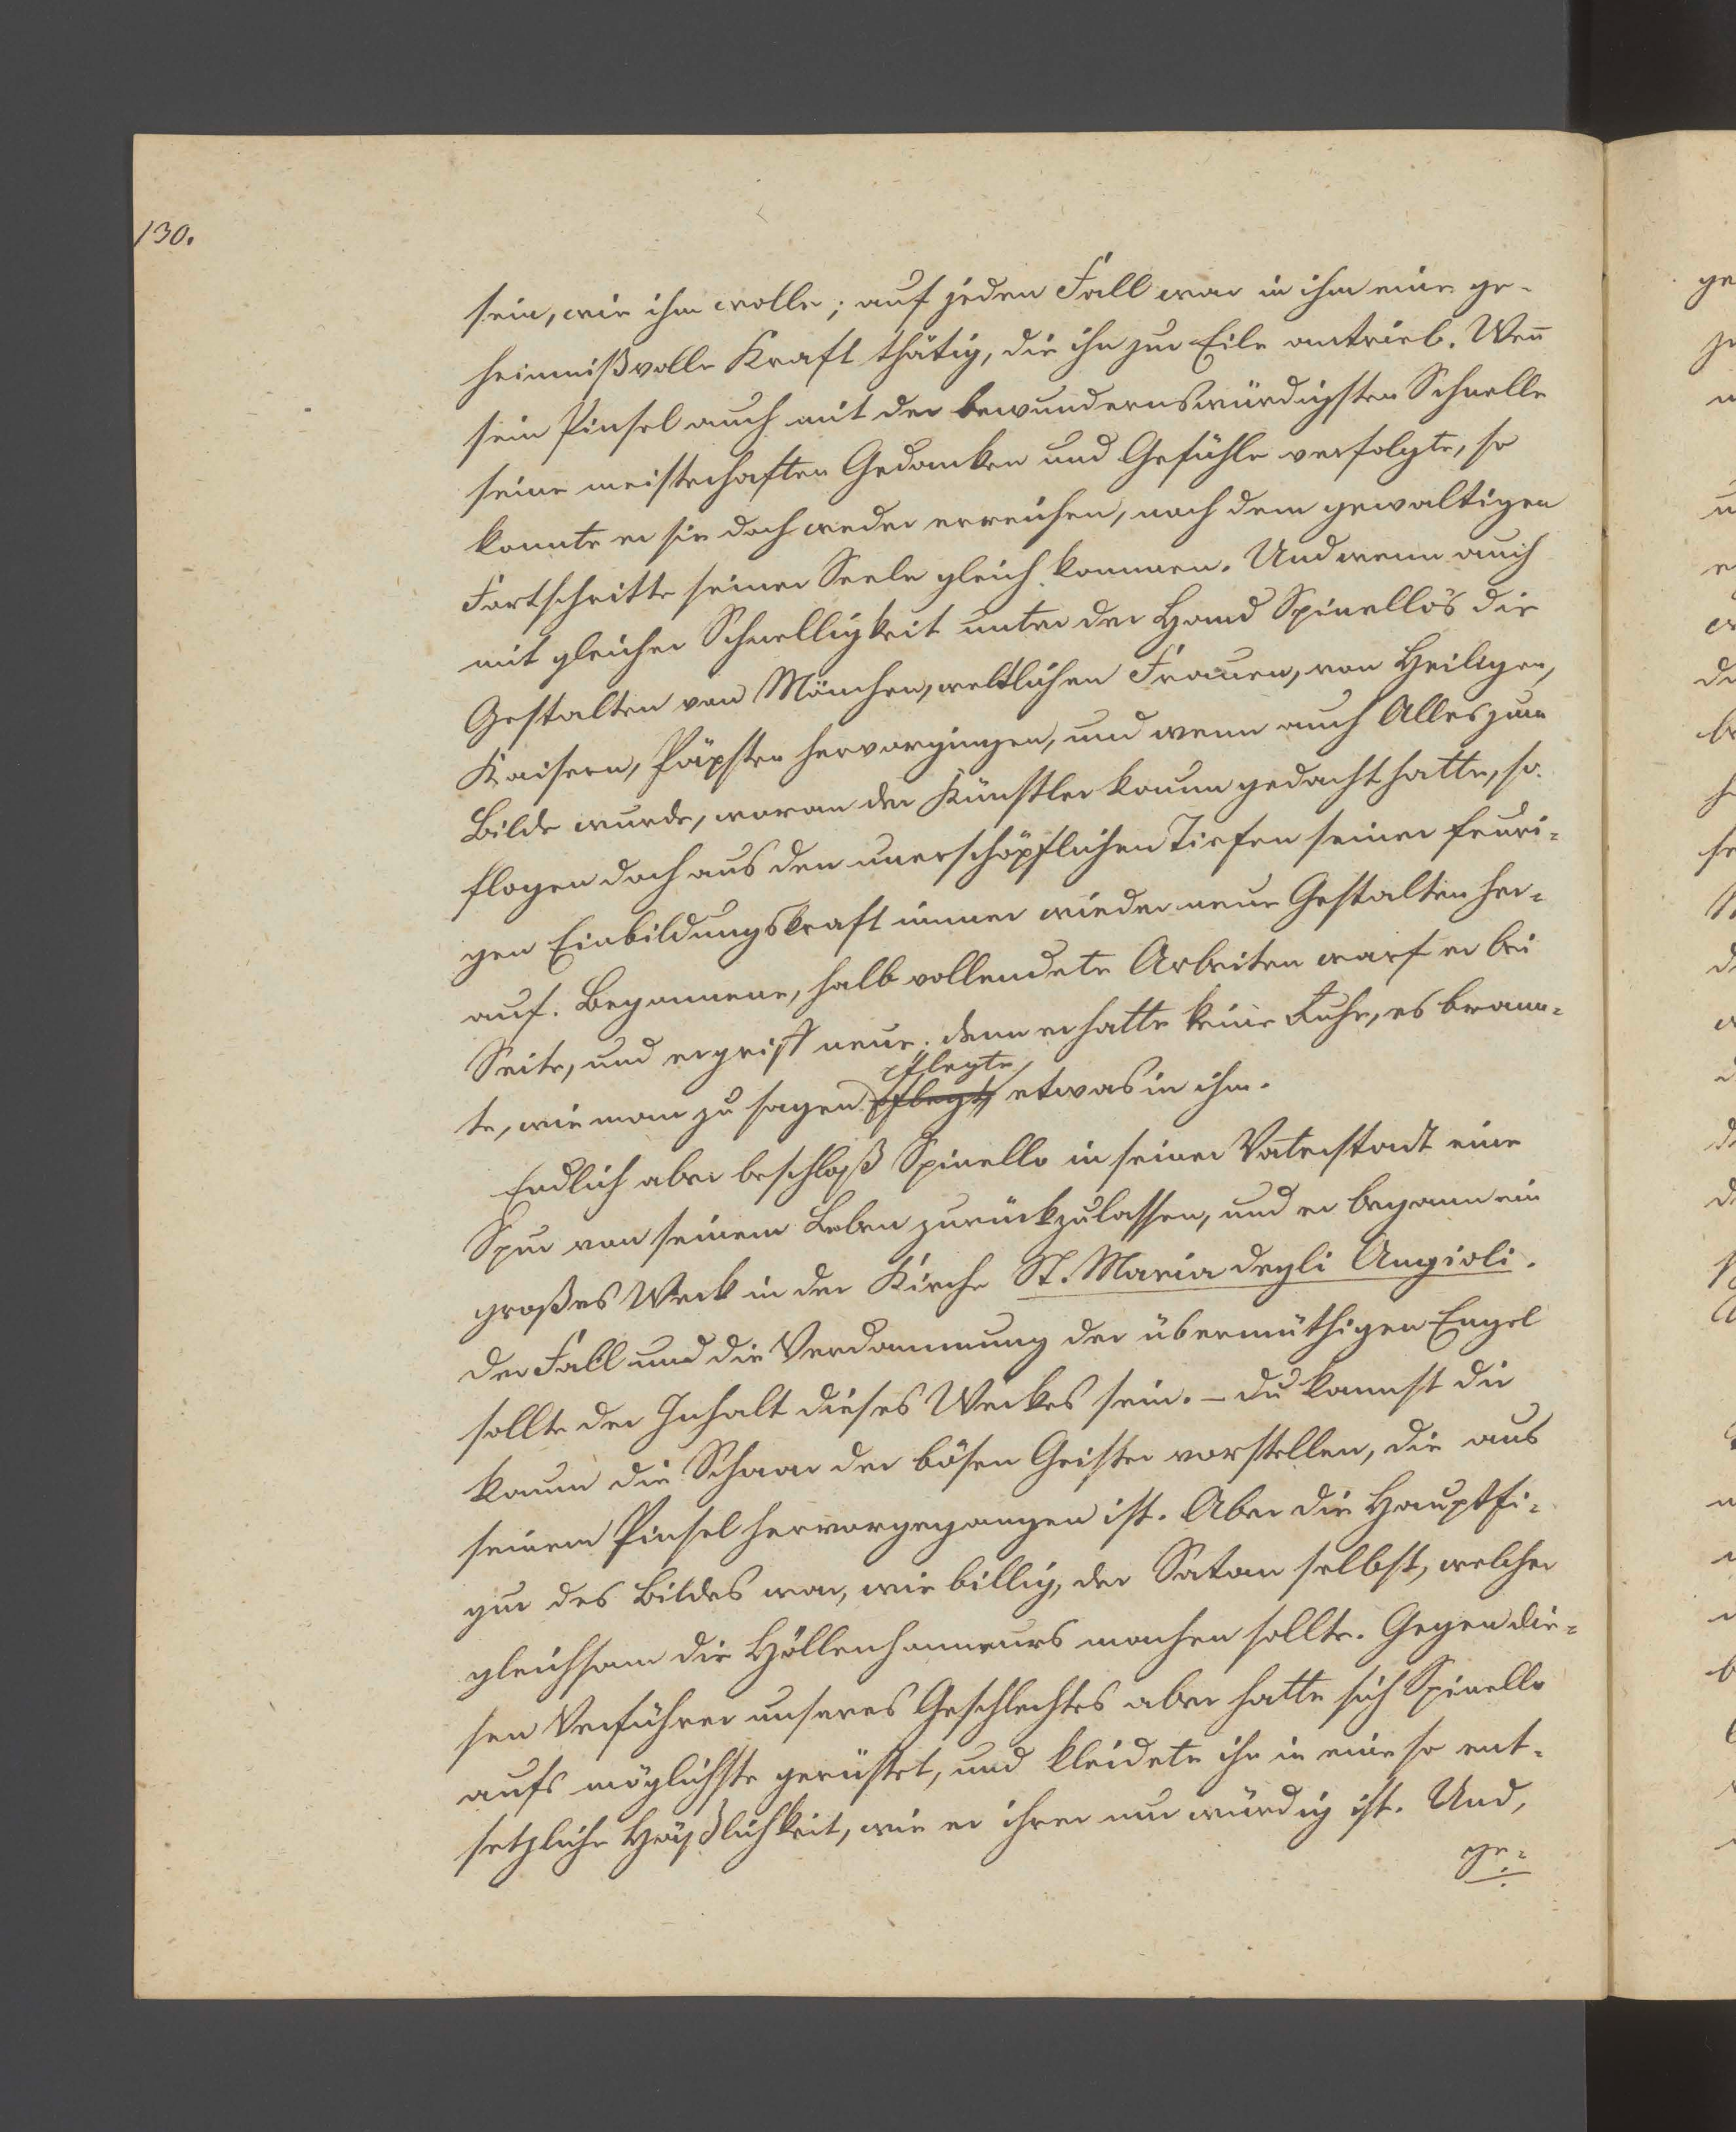 130.
sein, wie ihm wolle; auf jeden Fall war in ihm eine ge-
heimnißvolle Kraft thätig, die ihn zur Eile antrieb. Weñ
sein Pinsel auch mit der bewundernswürdigsten Schnelle
seine meisterhaften Gedanken und Gefühle verfolgte, so
konnte er sie doch weder erreichen, noch dem gewaltigen
Fortschritte seiner Seele gleich kommen. Und wenn auch
mit gleicher Schnelligkeit unter der Hand Spinello's die
Gestalten von Mönchen, weltlichen Frauen, von Heiligen,
Kaisern, Päpsten hervorgingen, und wenn auch Alles zum
Bilde wurde, woran der Künstler kaum gedacht hatte, so
flogen doch aus den unerschöpflichen Tiefen seiner feuri-
gen Einbildungskraft immer wieder neue Gestalten her-
auf. Begonnene, halb vollendete Arbeiten warf er bei
Seite, und ergriff neue; denn er hatte keine Ruhe, es brann-
pflegte
te, wie man zu sagen pflegt, etwas in ihm.
Endlich aber beschloß Spinello in seiner Vaterstadt eine
Spur von seinem Leben zurückzulassen, und er begann ein
großes Werk in der Kirche St. Maria degli Angioli.
Der Fall und die Verdammung der übermüthigen Engel
sollte der Inhalt dieses Werkes sein. – Du kannst dir
kaum die Schaar der bösen Geister vorstellen, die aus
seinem Pinsel hervorgegangen ist. Aber die Hauptfi-
gur des Bildes war, wie billig, der Satan selbst, welcher
gleichsam die Höllenhonneurs machen sollte. Gegen die-
sen Verführer unseres Geschlechtes aber hatte sich Spinello
aufs möglichste gerüstet, und kleidete ihn in eine so ent-
setzliche Häßlichkeit, wie er ihrer nur würdig ist. Und,
ge-